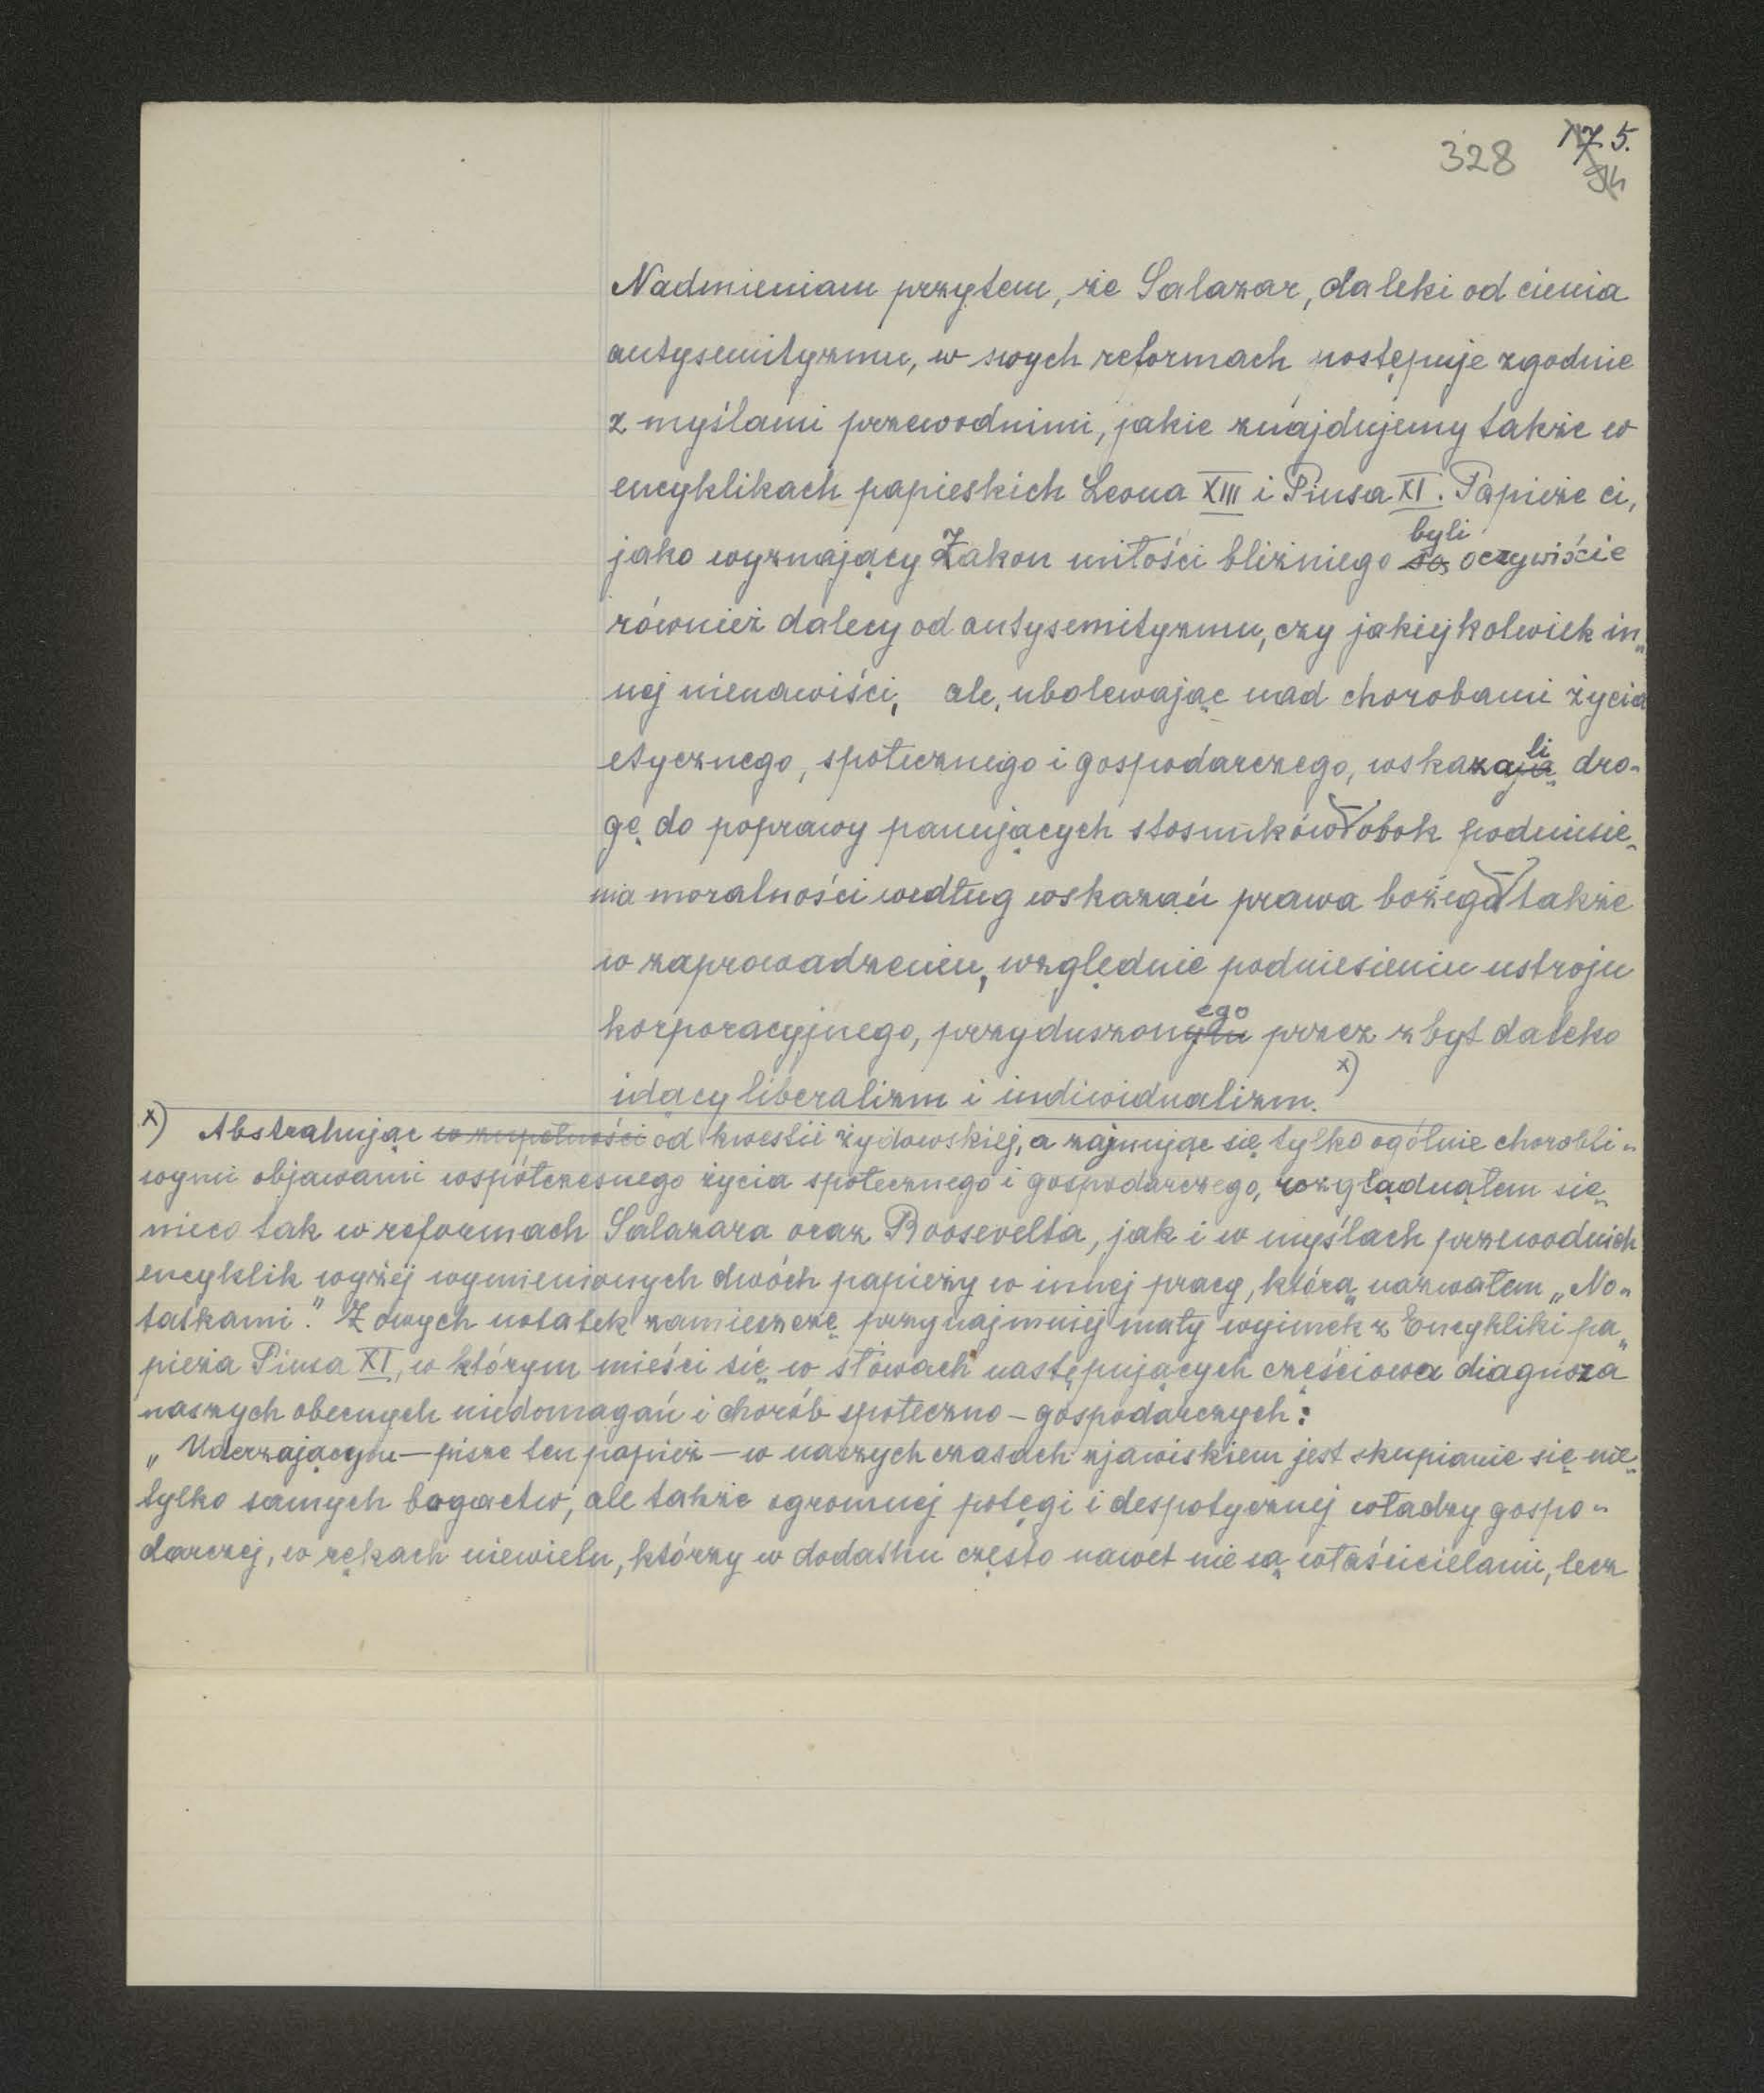 328
175.
Nadmieniam przytem, że Salazar, daleki od cienia
antysemityzmu, w swych reformach postępuje zgodnie
z myślami przewodnimi, jakie znajdujemy także w
encyklikach papieskich Leona XIII i Piusa XI. Papieże ci,
jako wyznający Zakon miłości bliźniego są byli oczywiście
również dalecy od antysemityzmu, czy jakiejkolwiek in„
nej nienawiści, ale, ubolewając nad chorobami życia
etycznego, społecznego i gospodarczego, wskazają li dro-
gę do poprawy panujących stosunków obok podniesie„
nia moralności według wskazań prawa bożego także
w zaprowadzeniu, względnie podniesieniu ustroju
korporacyjnego, przyduszonytu ego przez zbyt daleko
idący liberalizm i indiwidualizm. x)
x) Abstrahując w zupełności od kwestii żydowskiej, a zajmując się tylko ogólnie chorobli„
wymi objawami współczesnego życia społecznego i gospodarczego, rozglądnąłem się
nieco tak w reformach Salazara oraz Roosevelta, jak i w myślach przewodnich
encyklik wyżej wymienionych dwóch papieży w innej pracy, którą nazwałem „No„
tatkami." Z owych notatek zamieszczę przynajmniej mały wyimek z Encykliki pa„
pieża Piusa XI, w którym mieści się w słowach następujących częściowa diagnoza
naszych obecnych niedomagań i chorób społeczno-gospodarczych:
„Uderzającym — pisze ten papież — w naszych czasach zjawiskiem jest skupianie się nie„
tylko samych bogactw, ale także ogromnej potęgi i despotycznej władzy gospo„
darczej, w rękach niewielu, którzy w dodatku często nawet nie są właścicielami, lecz